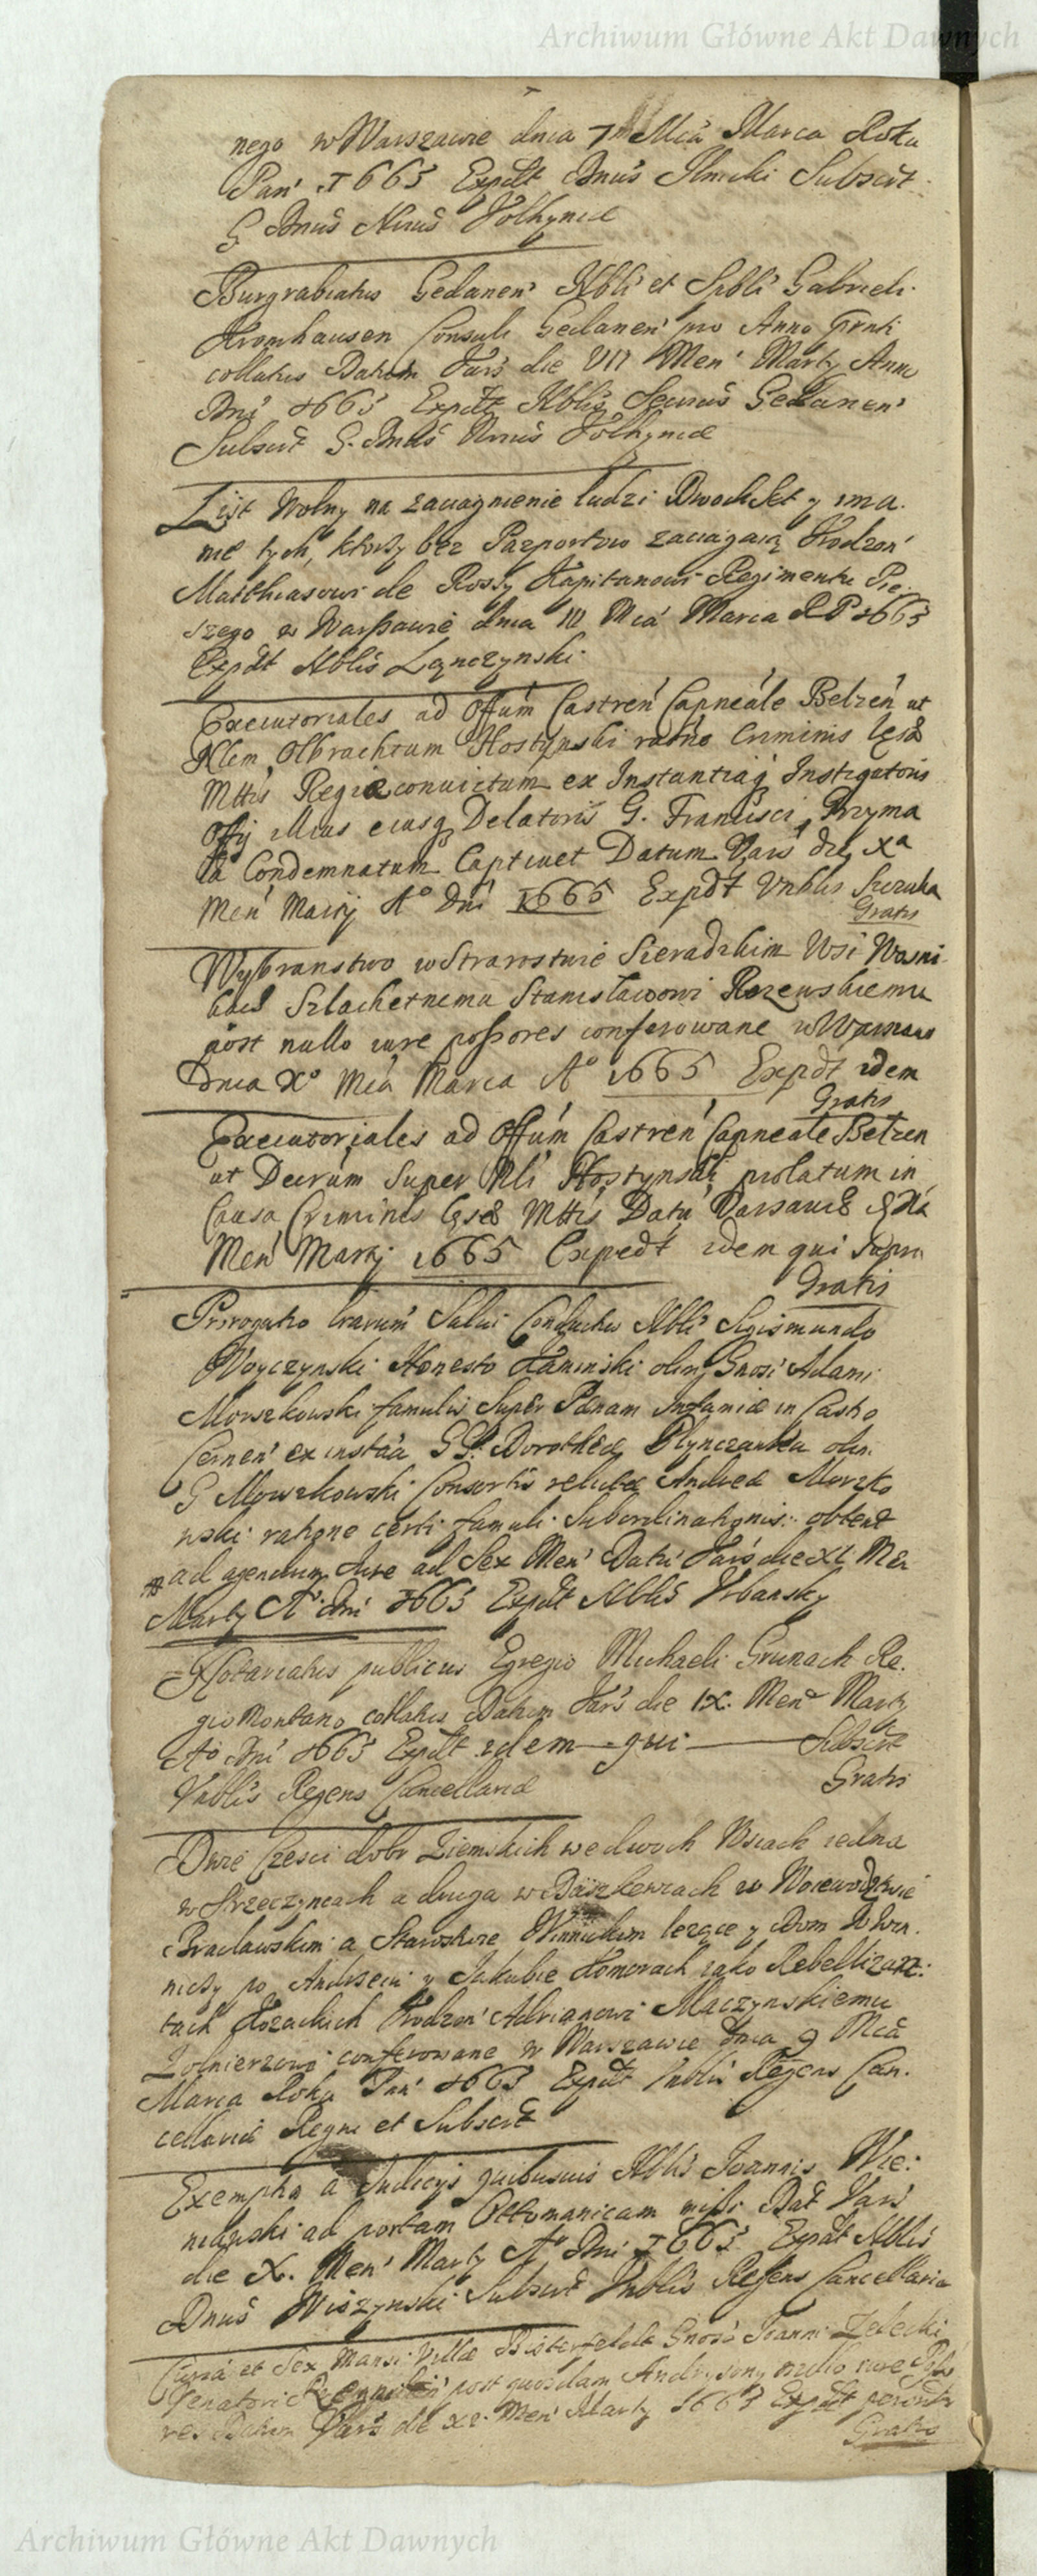 Archiwum Główne Akt Dawnych
nego w Warszawie dnia 7 Mca Marca Roku
Pan' 1665 Expdt Dnus Ilnicki Subscrt
G Dnus Nrius Volhyniae
Burgrabiatus Gedanen' Nbli et Spbli Gabrieli
Kromhausen Consuli Gedanen' pro Anno
collatus Datum Vars die VII Men' Marty Anno
Dni 1665 Expdt Nblis Gedanen'
Subscrt G. Dnus Nrius Volhyniae
List Wolny na zaciągnienie ludzi Dwochset y ima
nie tych, ktorzy bez Pasportow zaciągaią Urodzon'
Matthiasowi de Rossy Kapitanowi Regimentu Pie
szego w Warszawie dnia III Mca Marca RP 1665
Expdt Nblis Lączynski
Executoriales ad Offum Castren Capneale Belzen ut
Nlem Olbrachtum Hostynski raõne Criminis læsæ
Mttis Regiæ convictum ex Instantiaq Instigatoris
Offy illius eiusq Delatoris G. Francisci Przyma
la Condemnatum Captivet Datum Vars die Xa
Men' Marty Ao Dni 1665 Expdt Vnblis Szczuka
Gratis
Wybranstwo w Starostwie Sieradzkim Wsi Wozni
kach Szlachetnemu Stanisławowi Rozewskiemu
post nullo iure possores conferowane w Warszaw
Dnia Xo Mca Marca Ao 1665 Expdt idem
Gratis
Executoriales ad Offum Castren Capneale Belzen
ut Decrum Super Nli Hostynski prolatum in
Causa Criminis læsæ Mttis Datu Varsaviæ
Men Marty 1665 Expedt idem qui supra
Gratis
Prorogatio lrarum Salvi Conductus Nbli Sigismundo
Woyczynski Honesto Kaminski olim Gnosi Adami
Morszkowski famulis Super Pænam Infamiæ in Castro
Cernen' ex insta'a GG. Dorotheæ Płynczanka olim
G Morszkowski Consortis relictæ Andreæ Morszko
wski ratione certi famuli Subordinationis obtent
ad agendum Iure ad Sex Men' Datu Vars die XI Men
Marty Ao dni 1665 Expdt Nblis Vrbansky
Notariatus publicus Egregio Michaeli Grunach Re
gio Montano collatus Datum Vars die IX. Men' Marty
Ao Dni 1665 Expdt idem qui Subscrt
Vnblis Regens Cancellariæ Gratis
Dwie Części dobr Ziemskich we dwoch Wsiach iedna
w Strzeczyncach a druga w Daszkewcach w Woiewodztwie
Bracławskim a Starostwie Winnickim leżące y Dom w Win
nicy po Andrzeiu y Jakubie Komorach iako Rebellizan
tach Kozackich Urodzon' Adrianowi Mączynskiemu
Zołnierzowi conferowane w Warszawie dnia 9 Mca
Marca Roku Pan' 1665 Expdt Vnblis Regens Can
cellariæ Regni et Subscrt
Exemptio a Iudicijs quibusvis Nblis Joannis Wie
niawski ad portam Ottomanicam missi Dat Vars
die X. Men' Marty Ao Dni 1665 Expdt Nblis
Dnus Wiszynski Subscrt Vnblis Regens Cancellariæ
Curia et Sex Mansi Villæ Bisterfeldt Gnoso Joanni Zelecki
Venatori Regni post quondam Andrysony nullo iure
res Datum Vars die Men' Marty 1665 Expdt
Gratis
Archiwum Główne Akt Dawnych